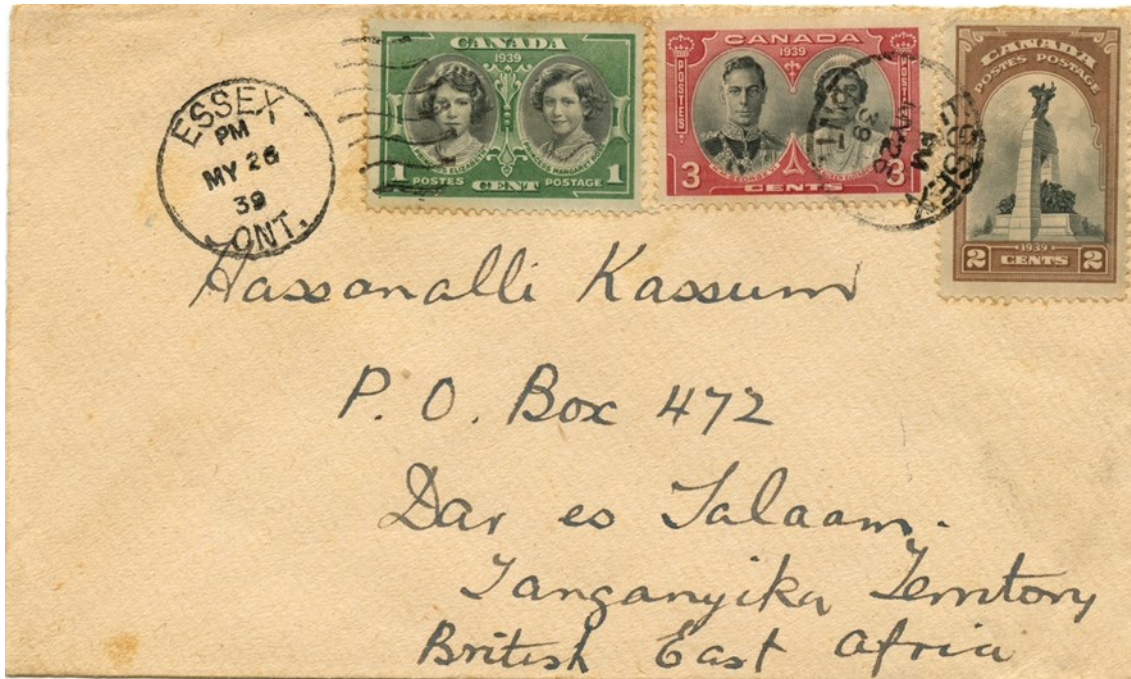 ESSEX
PM
MY 26
39
ONT.
CANADA
1939
PRINCESS ELIZABETH PRINCESS MARGARET ROSE
1 POSTES CENT POSTAGE 1
CANADA
1939
POSTES
3 CENTS 3
CANADA
POSTES POSTAGE
1939
2 CENTS 2
ESSEX
PM
MY 26
39
ONT.
Hassanalli Kassum
P. O. Box 472
Dar es Salaam.
Tanganyika Territory
British East Africa